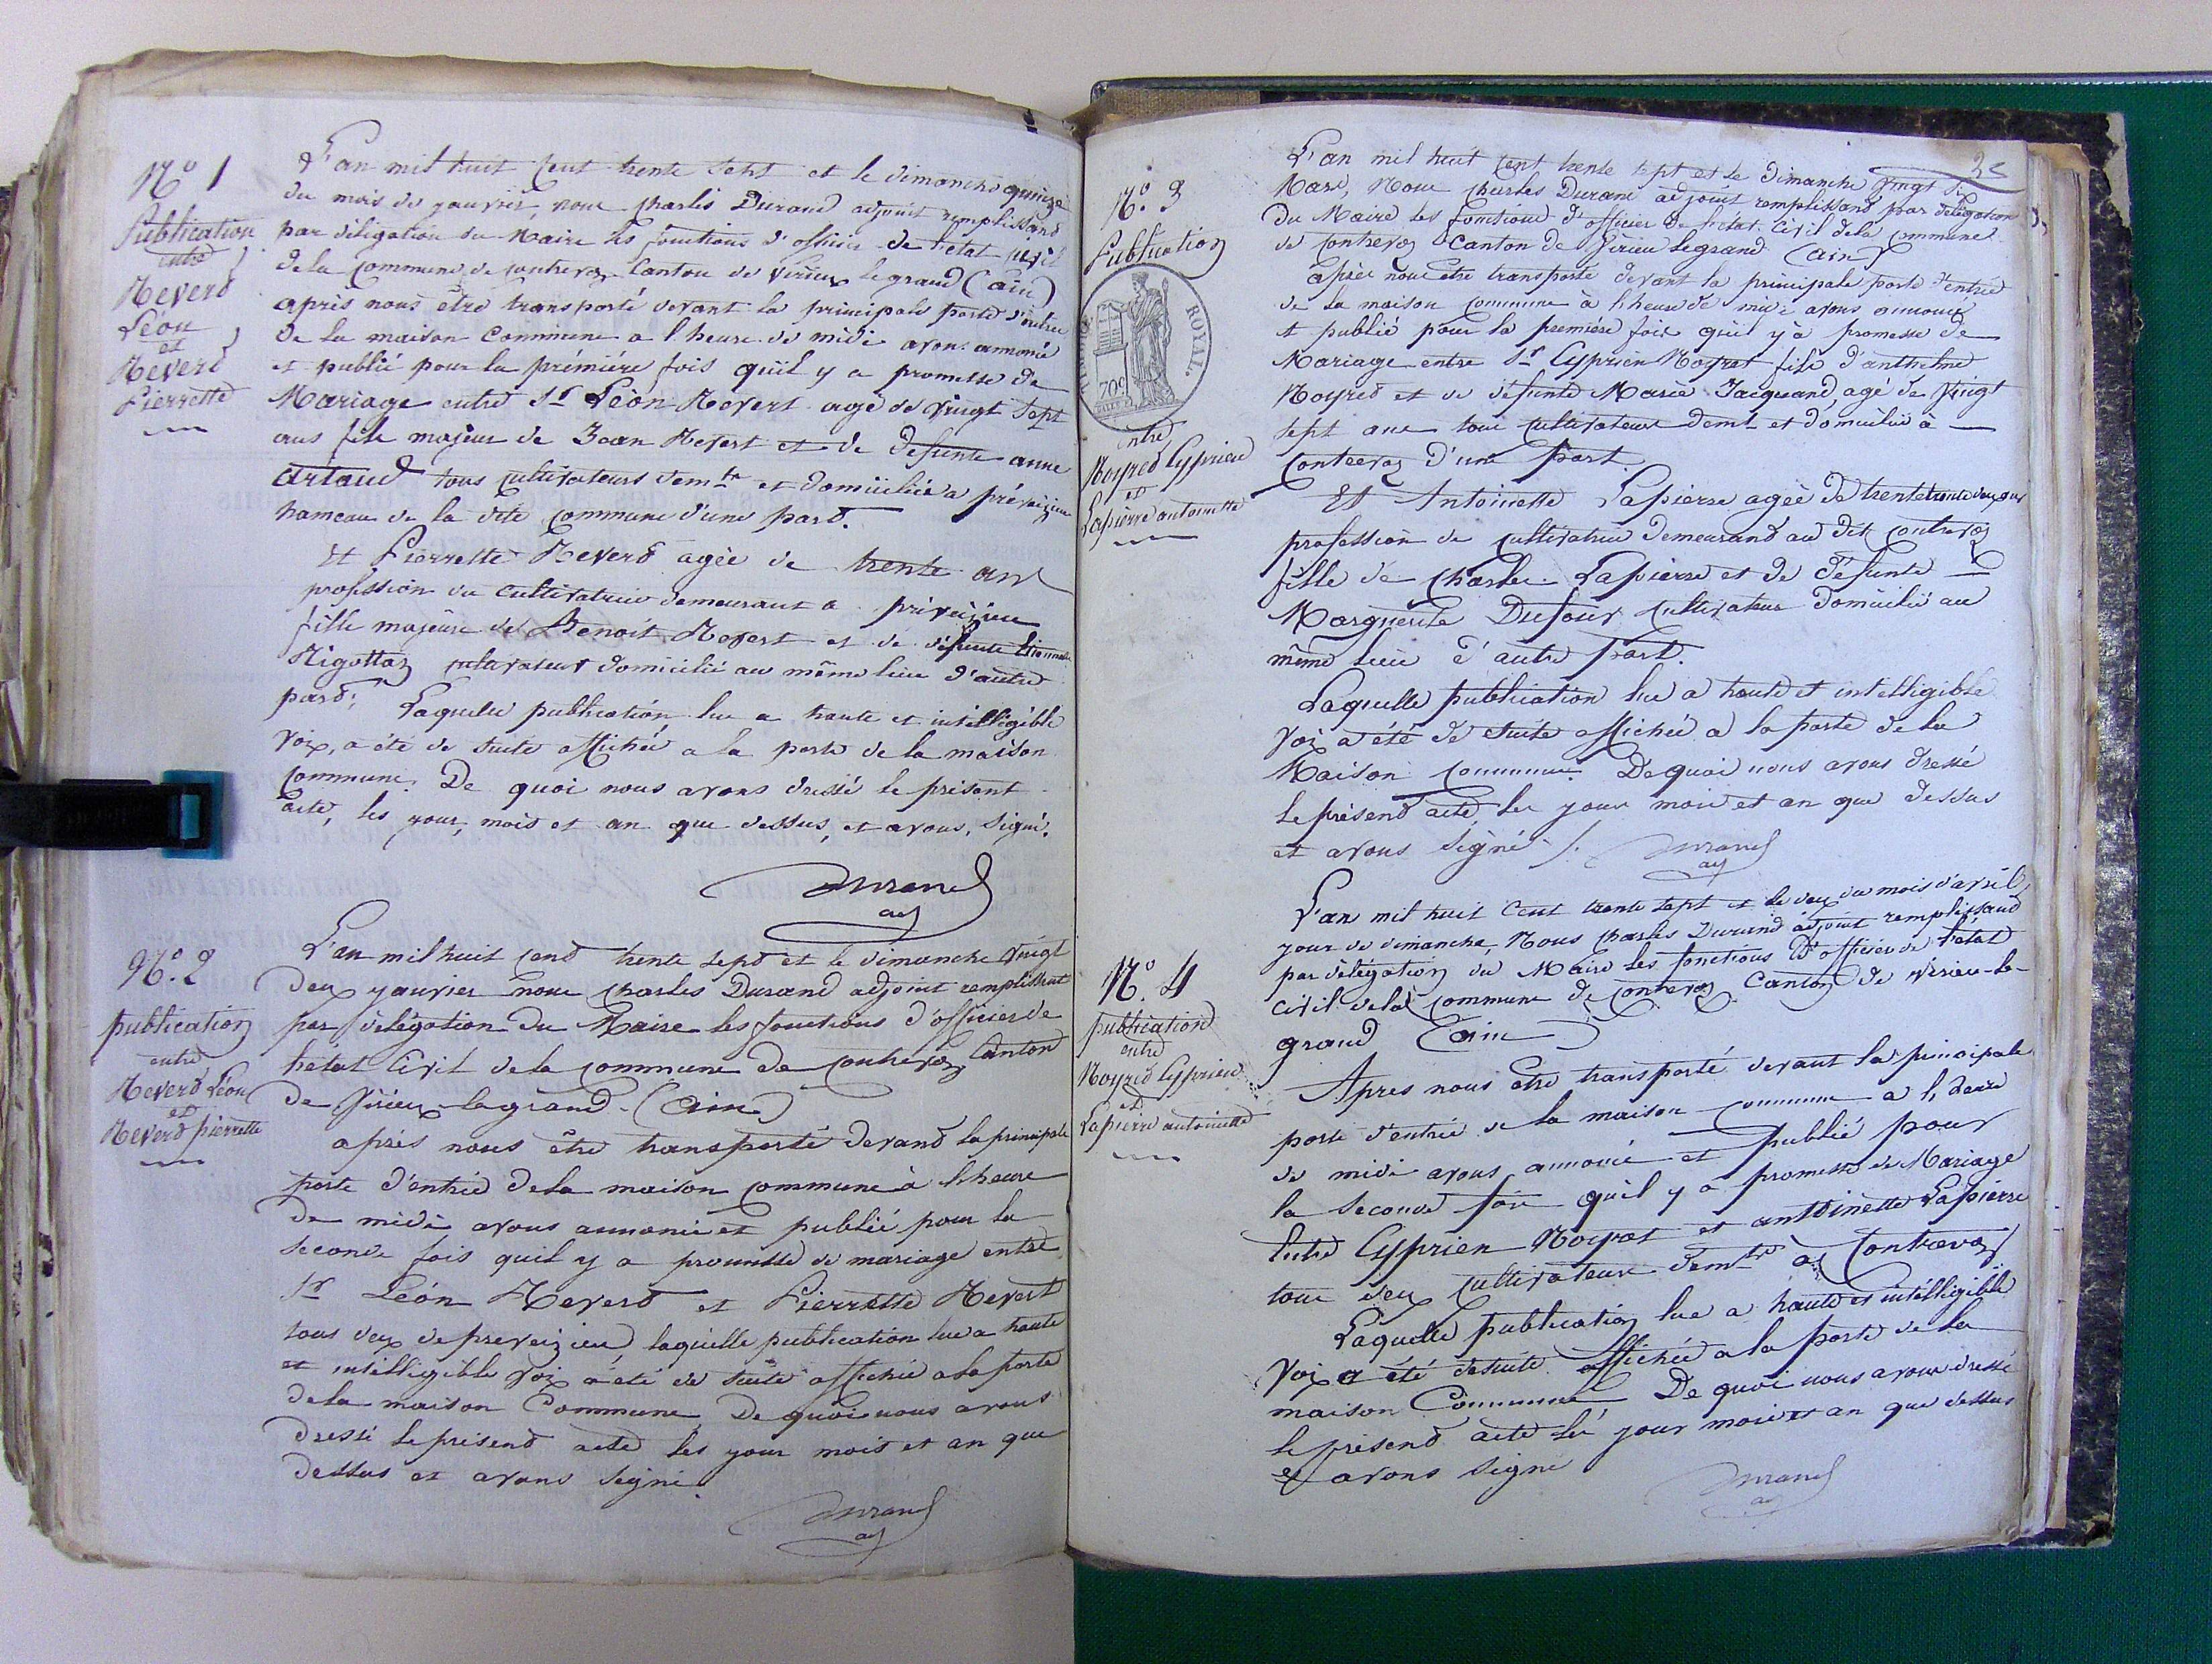 N° 1
Publication
entre
Revert
Léon
et
Revert
Pierrette
L'an mil huit Cent trente Sept et le dimanche quinze
du mois de janvier, nous Charles Durand adjoint remplissant
par délégation du Maire les fonctions d'officier de l'état civil
de la Commune de Contrevoz Canton de Virieux le grand (ain)
après nous être transporté devant la principale porte d'entrée
de la maison Commune a l'heure de midi avons annoncé
et publié pour la première fois qu'il y a promesse de
Mariage entre Sr Léon Revert agé de vingt Sept
ans fils majeur de Jean Revert et de defunte anne
artaud tous cultivateurs demts et domicilié a préveizieu
hameau de la dite Commune d'une part.
Et Pierrette Revert agée de trente ans
profession de Cultivatrice demeurant a préveizieu
fille majeure de Benoit Revert et de défunte
Rigottaz cultivateur domicilié au même lieu d'autre
part; Laquelle publication lue a haute et intelligible
Voix, a été de suite affichée a la porte de la maison
Commune. De quoi nous avons dressé le présent
acte, les jour, mois et an que dessus, et avons, signé.
Durand
adj
N°. 2
publication
entre
Revert Léon
et
Revert pierrette
L'an mil huit Cent trente Sept et le dimanche vingt
deux janvier nous Charles Durand adjoint remplissant
par délégation du Maire les fonctions d'officier de
l'état Civil de la Commune de Contrevoz Canton
de Virieux-le-grand. (ain)
après nous être transporté devant la principale
porte d'entrée de la maison Commune à l'heure
de midi avons annoncé et publié pour la
seconde fois quil y a promesse de mariage entre
Sr Léon Revert et Pierrette Revert
tous deux de preveizieu, laquelle publication lue a haute
et intelligible Voix a été de suite affichée a la porte
de la maison Commune, De quoi nous avons
dressé le présent acte les jour mois et an que
dessus et avons signé.
Durand
adj
N°. 3
Publication
TIMBRE ROYAL.
70c
entre
Noyret Cyprien
et
Lapierre antoinette
L'an mil huit Cent trente Sept et le dimanche vingt Six
Mars, Nous Charles Durand adjoint remplissant par délégation
du Maire les fonctions d'officier de l'état Civil de la Commune
de Contrevoz Canton de Virieu le grand (ain)
après nous être transporté devant la principale porte d'entrée
de la maison Commune à l'heure de midi avons annoncé
et publié pour la première fois quil y à promesse de
Mariage entre Sr Cyprien Noyret fils d'anthelme
Noyret et de défunte Marie Jacquand, agé de Vingt
Sept ans tous Cultivateurs demt et domicilié à
Contrevoz d'une part.
Et Antoinette Lapierre agée de trente deux ans
profession de Cultivatrice demeurant au dit Contrevoz
fille de Charles Lapierre et de défunte
Marguerite Dufour Cultivateur domicilié au
même lieu d'autre part.
Laquelle publication lue a haute et intelligible
Voix a été de suite affichée a la porte de la
Maison Commune. De quoi nous avons dressé
le présent acte, les jour mois et an que dessus
et avons signé ./.
Durand
adj
N°. 4
publication
entre
Noyret Cyprien
et
Lapierre antoinette
L'an mil huit Cent trente sept et le deux du mois d'avril
jour de dimanche, Nous Charles Durand adjoint remplissant
par délégation du Maire les fonctions d'officier de l'état
civil de la commune de Contrevoz Canton de Virieu-le-
grand (ain)
Après nous être transporté devant la principale
porte d'entrée de la maison Commune a l'heure
de midi avons annoncé et publié pour
la seconde fois quil y a promesse de Mariage
Entre Cyprien Noyret et antoinette Lapierre
tous deux Cultivateurs demts à Contrevoz
Laquelle publication lue a haute et intelligible
Voix a été de suite affichée a la porte de la
maison Commune, De quoi nous avons dressé
le présent acte les jour mois et an que dessus
et avons signé
Durand
adj